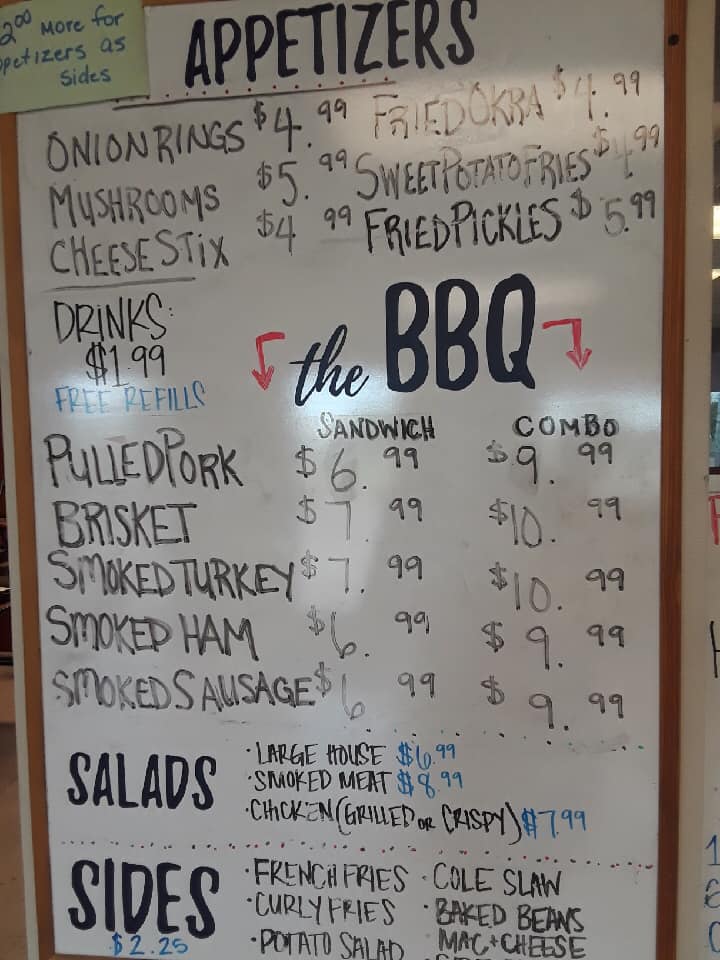 2.00 More for
Appetizers as
Sides
APPETIZERS
ONION RINGS $4.99 FRIED OKRA $4.99
MUSHROOMS $5.99 SWEET POTATO FRIES $4.99
CHEESE STIX $4.99 FRIED PICKLES $5.99
DRINKS:
$1.99
FREE REFILLS
the BBQ
SANDWICH COMBO
PULLED PORK $6.99 $9.99
BRISKET $7.99 $10.99
SMOKED TURKEY $7.99 $10.99
SMOKED HAM $6.99 $9.99
SMOKED SAUSAGE $6.99 $9.99
SALADS
· LARGE HOUSE $6.99
· SMOKED MEAT $8.99
· CHICKEN (GRILLED OR CRISPY) $7.99
SIDES
$2.25
· FRENCH FRIES · COLE SLAW
· CURLY FRIES · BAKED BEANS
· POTATO SALAD MAC+CHEESE